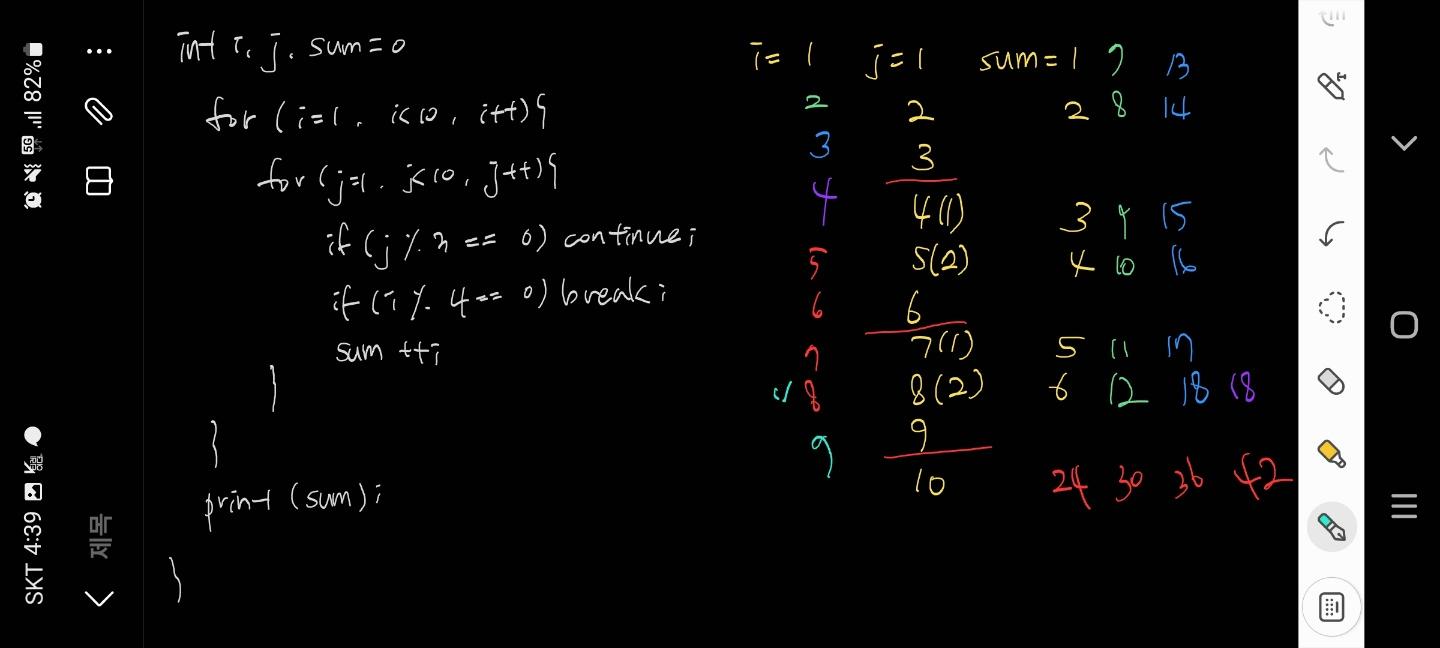 int i, j, sum = 0
for (i=1, i<10, i++){
for (j=1, j<10, j++){
if (j % 3 == 0) continue;
if (i % 4 == 0) break;
sum ++;
}
}
print (sum);
}
i= 1 j=1 sum=1 7 13
2 2 2 8 14
3 3
4 4(1) 3 9 15
5 5(2) 4 10 16
6 6
7 7(1) 5 11 17
8 8(2) 6 12 18 18
9 9
10 24 30 36 42
SKT 4:39
5G 82%
제목